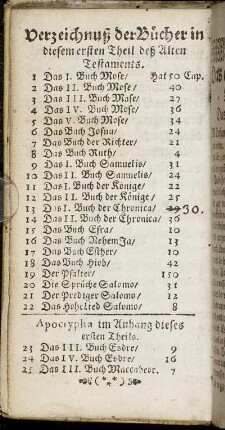 Verzeichnuß der Bücher in
diesem ersten Theil deß Alten
Testaments.
1 Das I. Buch Mose/ Hat 50 Cap.
2 Das II. Buch Mose/ 40
3 Das III. Buch Mose/ 27
4 Das IV. Buch Mose/ 36
5 Das V. Buch Mose/ 34
6 Das Buch Josua/ 24
7 Das Buch der Richter/ 21
8 Das Buch Ruth/ 4
9 Das I. Buch Samuelis/ 31
10 Das II. Buch Samuelis/ 24
11 Das I. Buch der Könige/ 22
12 Das II. Buch der Könige/ 25
13 Das I. Buch der Chronica/ 30.
14 Das II. Buch der Chronica/ 36
15 Das Buch Esra/ 10
16 Das Buch Nehemja/ 13
17 Das Buch Esther/ 10
18 Das Buch Hiob/ 42
19 Der Psalter/ 150
20 Die Sprüche Salomo/ 31
21 Der Prediger Salomo/ 12
22 Das Hohelied Salomo/ 8
Apocrypha im Anhang dieses
ersten Theils.
23 Das III. Buch Esdre/ 9
24 Das IV. Buch Esdre/ 16
25 Das III. Buch Maccabeor. 7